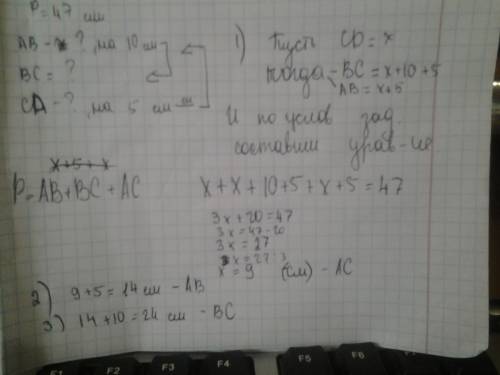 P = 47 см
AB - ?, на 10 см
BC = ?
CA - ?, на 5 см
1) Пусть CD = x
тогда - BC = x+10+5
AB = x+5
И по услов зад.
составим урав-ие
x+5+x
P = AB + BC + AC
x + x + 10 + 5 + x + 5 = 47
3x + 20 = 47
3x = 47 - 20
3x = 27
x = 27 : 3
x = 9 (см) - AC
2) 9 + 5 = 14 см - AB
3) 14 + 10 = 24 см - BC
F1 F2 F3 F4 F5 F6 F7